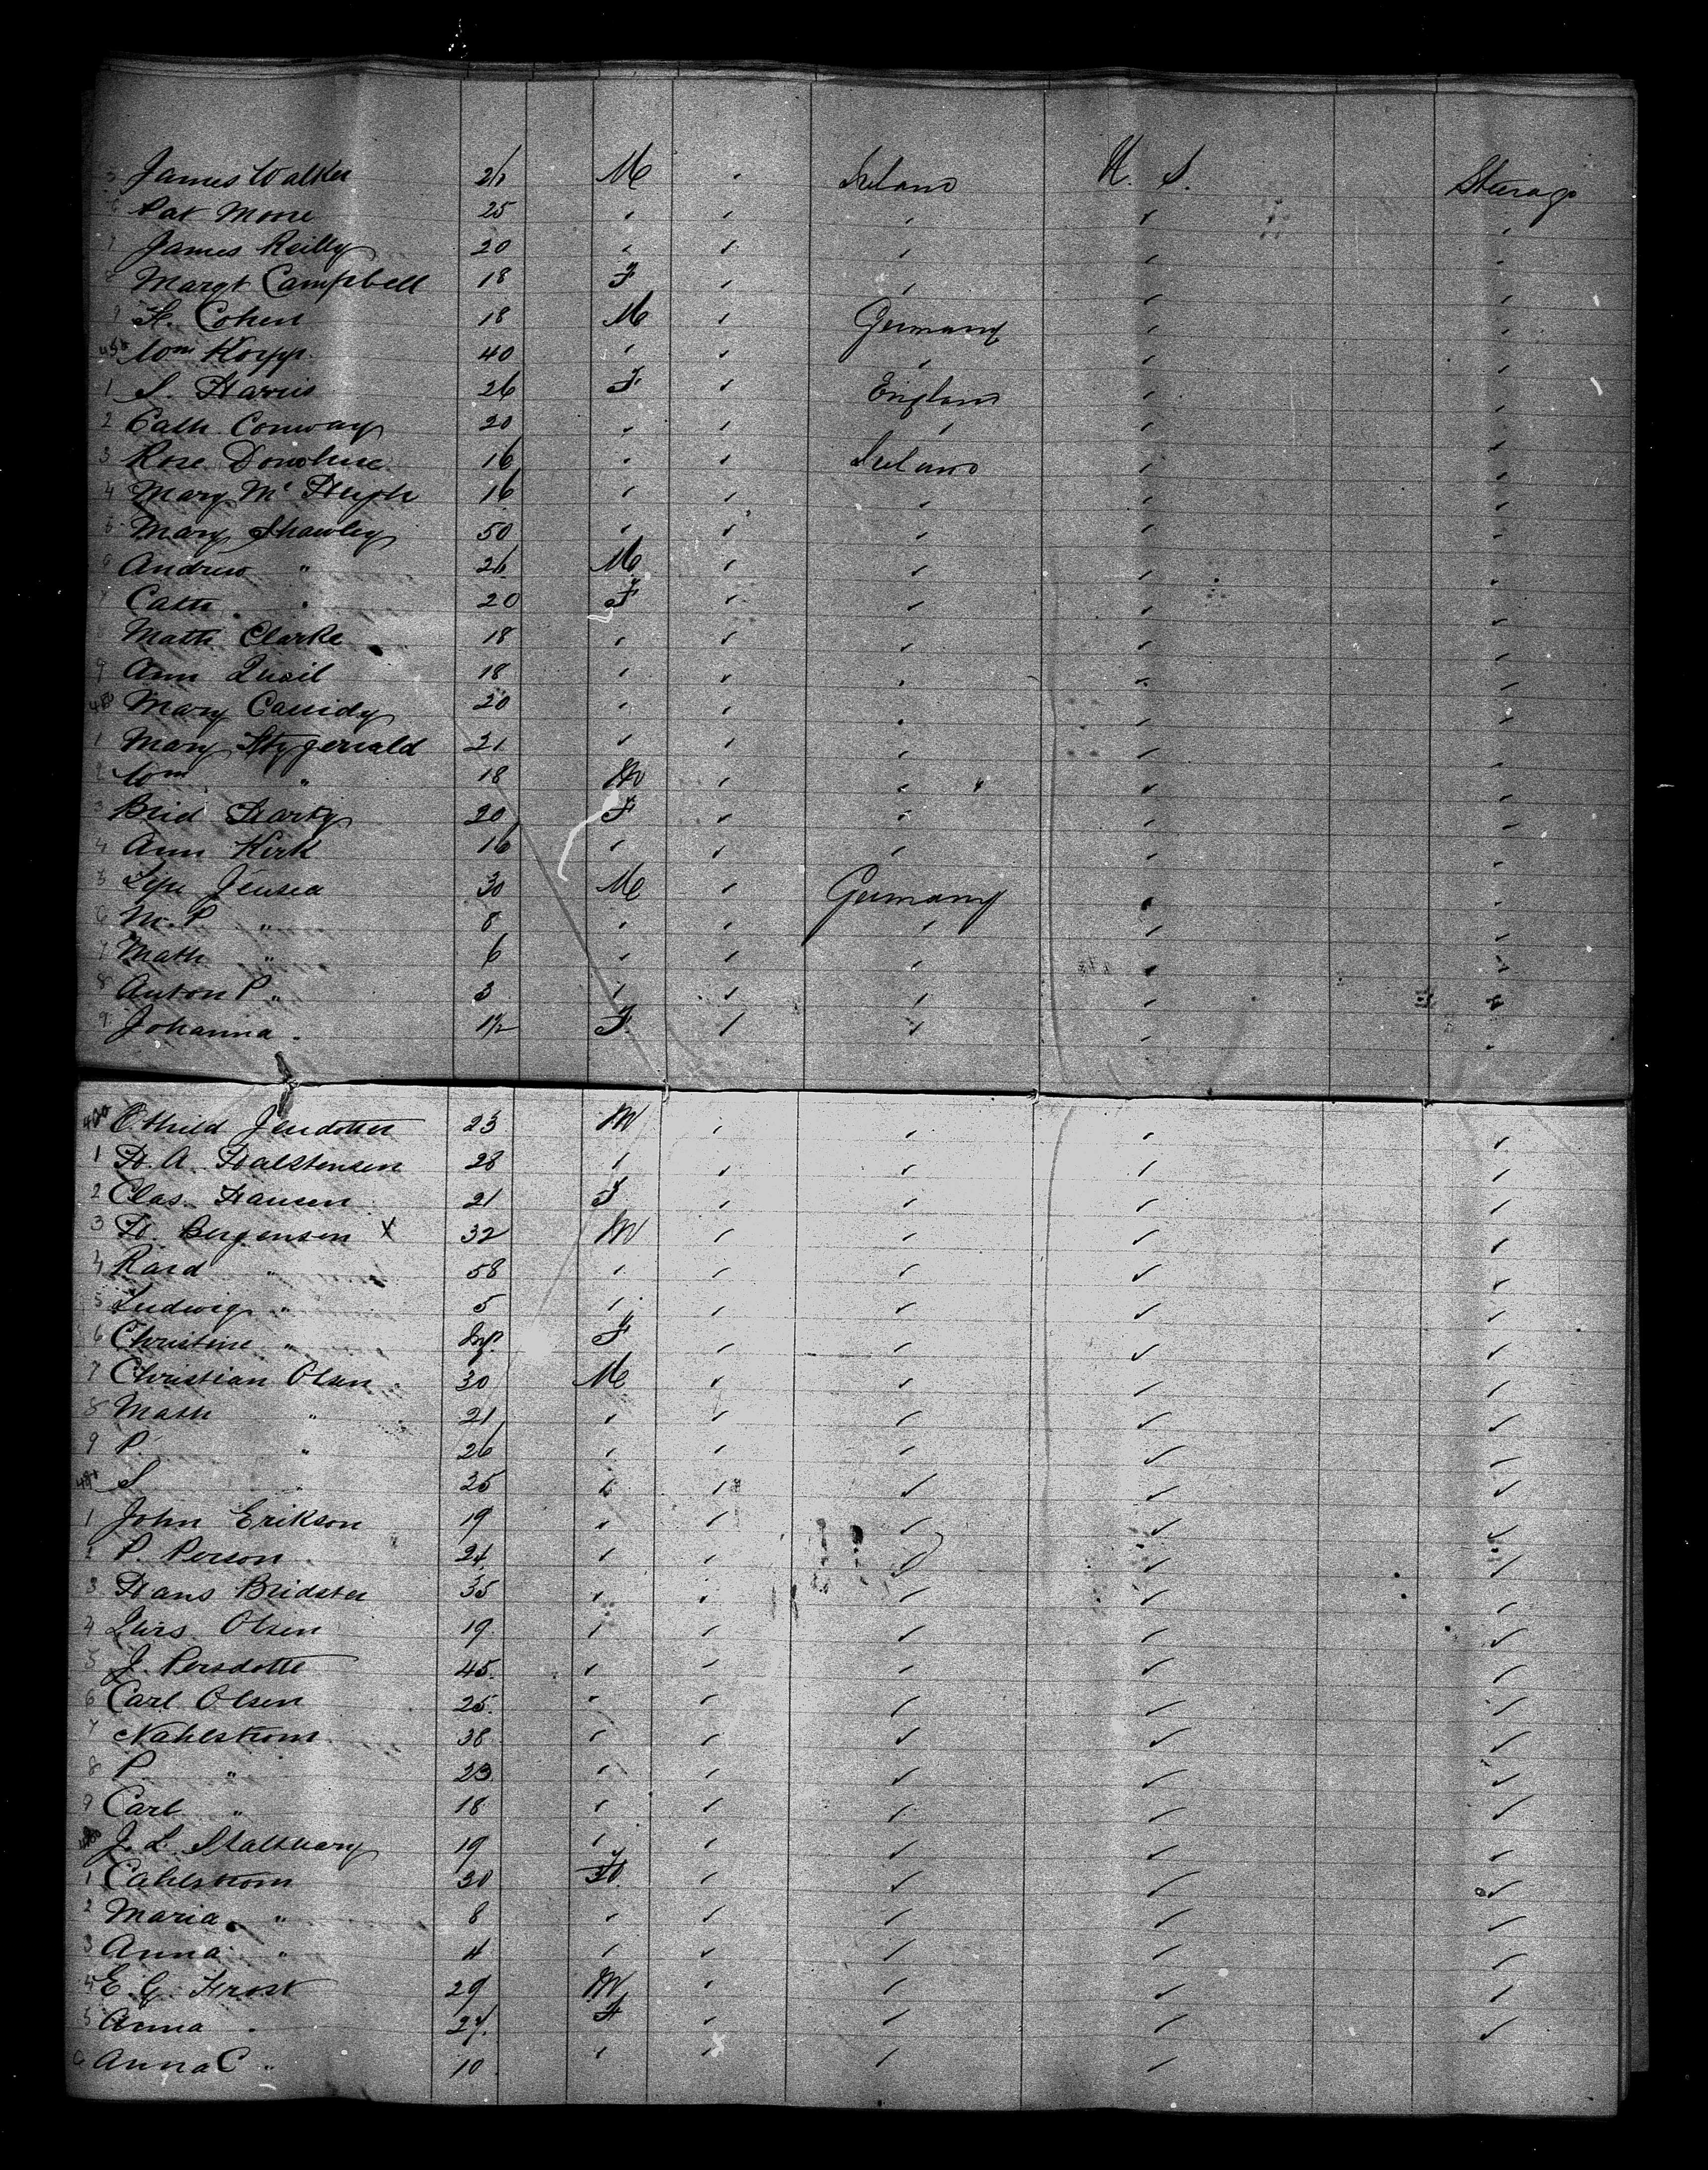 5 James Walker 26 M " Ireland U. S. Steerage
6 Pat Moore 25 " " " " "
7 James Reilly 20 " " " " "
8 Margt Campbell 18 F " " " "
9 H. Cohen 18 M " Germany " "
450 Wm Kopp 40 " " " " "
1 S. Harris 26 F " England " "
2 Cath Conway 20 " " " " "
3 Rose Donohue 16 " " Ireland " "
4 Mary Mc Hugh 16 " " " " "
5 Mary Shawley 50 " " " " "
6 Andrew " 26 M " " " "
7 Cath " 20 F " " " "
8 Math Clarke 18 " " " " "
9 Ann Quail 18 " " " " "
460 Mary Cassidy 20 " " " " "
1 Mary Fitzgerald 21 " " " " "
2 Wm " 18 M " " " "
3 Brid Harty 20 F " " " "
4 Ann Kirk 16 " " " " "
5 Jensea 30 M " Germany " "
6 M. P. " 8 " " " " "
7 Math " 6 " " " " "
8 Anton P. " 3 " " " " "
9 Johanna " 1½ F " " " "
470 Jendotter 23 M " " " "
1 H. A. Halstensen 28 " " " " "
2 Clas. Hansen 21 F " " " "
3 H. Bergensen X 32 M " " " "
4 Rard " 58 " " " " "
5 Ludwig " 5 " " " " "
6 Christine " Inf. F " " " "
7 Christian Olsen 30 M " " " "
8 Math " 21 " " " " "
9 P. " 26 " " " " "
480 S " 25 " " " " "
1 John Erikson 19 " " " " "
2 P. Person 24 " " " " "
3 Hans Bridster 35 " " " " "
4 Olsen 19 " " " " "
5 J. Persdotte 45 " " " " "
6 Carl Olsen 25 " " " " "
7 Nahlstrom 38 " " " " "
8 P " 23 " " " " "
9 Carl " 18 " " " " "
490 J. L. 19 " " " " "
1 Cahlstrom 30 F " " " "
2 Maria " 8 " " " " "
3 Anna " 4 " " " " "
4 E. G. Frost 29 M " " " "
5 Anna " 27 F " " " "
6 Anna C " 10 " " " "